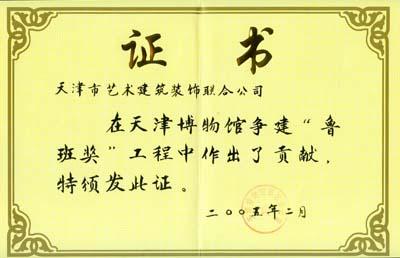 证书
天津市艺术建筑装饰联合公司
在天津博物馆争建“鲁
班奖”工程中作出了贡献，
特颁发此证。
二〇〇五年二月